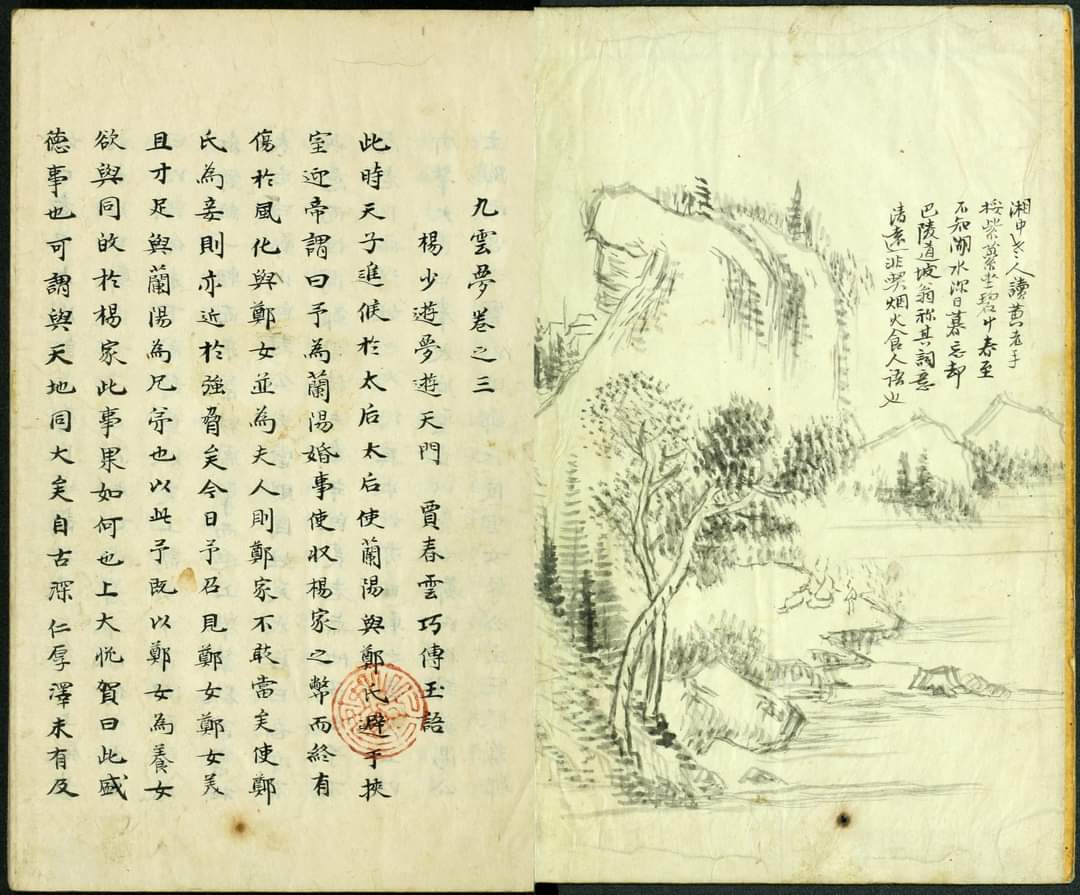 湘中老人讀黃老手
援紫藟坐碧草春至
不知湖水深日暮忘却
巴陵道坡翁称其詞意
清遠非喫烟火食人語也
九雲夢卷之三
楊少遊夢遊天門 賈春雲巧傳玉語
此時天子進候於太后太后使蘭陽與鄭氏避于挾
室迎帝謂曰予為蘭陽婚事使収楊家之幣而終有
傷於風化與鄭女並為夫人則鄭家不敢當矣使鄭
氏為妾則亦近於強脅矣今日予召見鄭女鄭女美
且才足與蘭陽為兄弟也以此予既以鄭女為養女
欲與同的於楊家此事果如何也上大悅賀曰此盛
德事也可謂與天地同大矣自古深仁厚澤未有及